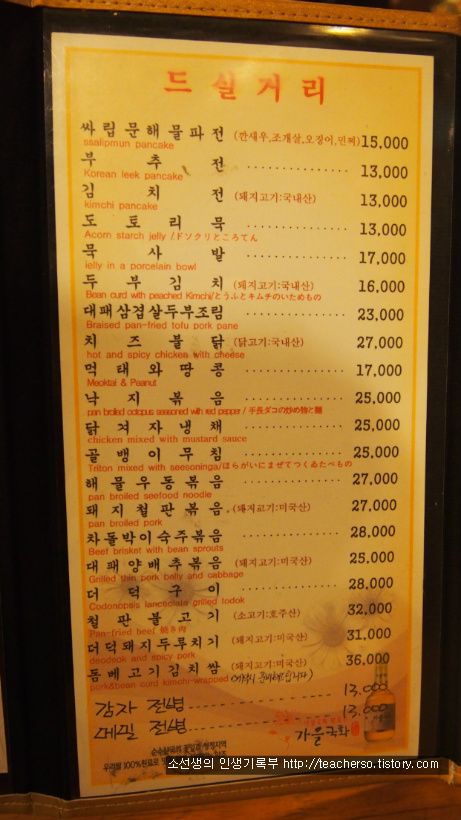 드실거리
싸립문해물파전 (깐새우,조개살,오징어,민찌) 15,000
ssalipmun pancake
부추전 13,000
Korean leek pancake
김치전 (돼지고기:국내산) 13,000
kimchi pancake
도토리묵 13,000
Acorn starch jelly /ドソクリところてん
묵사발 17,000
jelly in a porcelain bowl
두부김치 (돼지고기:국내산) 16,000
Bean curd with peached Kimchi/とうふとキムチのいためもの
대패삼겹살두부조림 23,000
Braised pan-fried tofu pork pane
치즈불닭 (닭고기:국내산) 27,000
hot and spicy chicken with cheese
먹태와땅콩 17,000
Meoktai & Peanut
낙지볶음 25,000
pan broiled octopus seasoned with red pepper / 手長ダコの炒め物と麺
닭겨자냉채 25,000
chicken mixed with mustard sauce
골뱅이무침 25,000
Triton mixed with seesoninga/ほらがいにまぜてつくゐたべもの
해물우동볶음 27,000
pan broiled seefood noodle
돼지철판볶음 (돼지고기:미국산) 27,000
pan broiled pork
차돌박이숙주볶음 28,000
Beef brisket with bean sprouts
대패양배추볶음 (돼지고기:미국산) 25,000
Grilled thin pork bally and cabbage
더덕구이 28,000
Codonopsis lanceolata grilled todok
철판불고기 (소고기:호주산) 32,000
Pan-fried beef 焼き肉
더덕돼지두루치기 (돼지고기:미국산) 31,000
deodeok and spicy pork
돔베고기김치쌈 (돼지고기:미국산) 36,000
pork&bean curd kimchi-wrapped
감자 전병 13,000
메밀 전병 13,000
가을국화
우리쌀 100%원료로
소선생의 인생기록부 http://teacherso.tistory.com